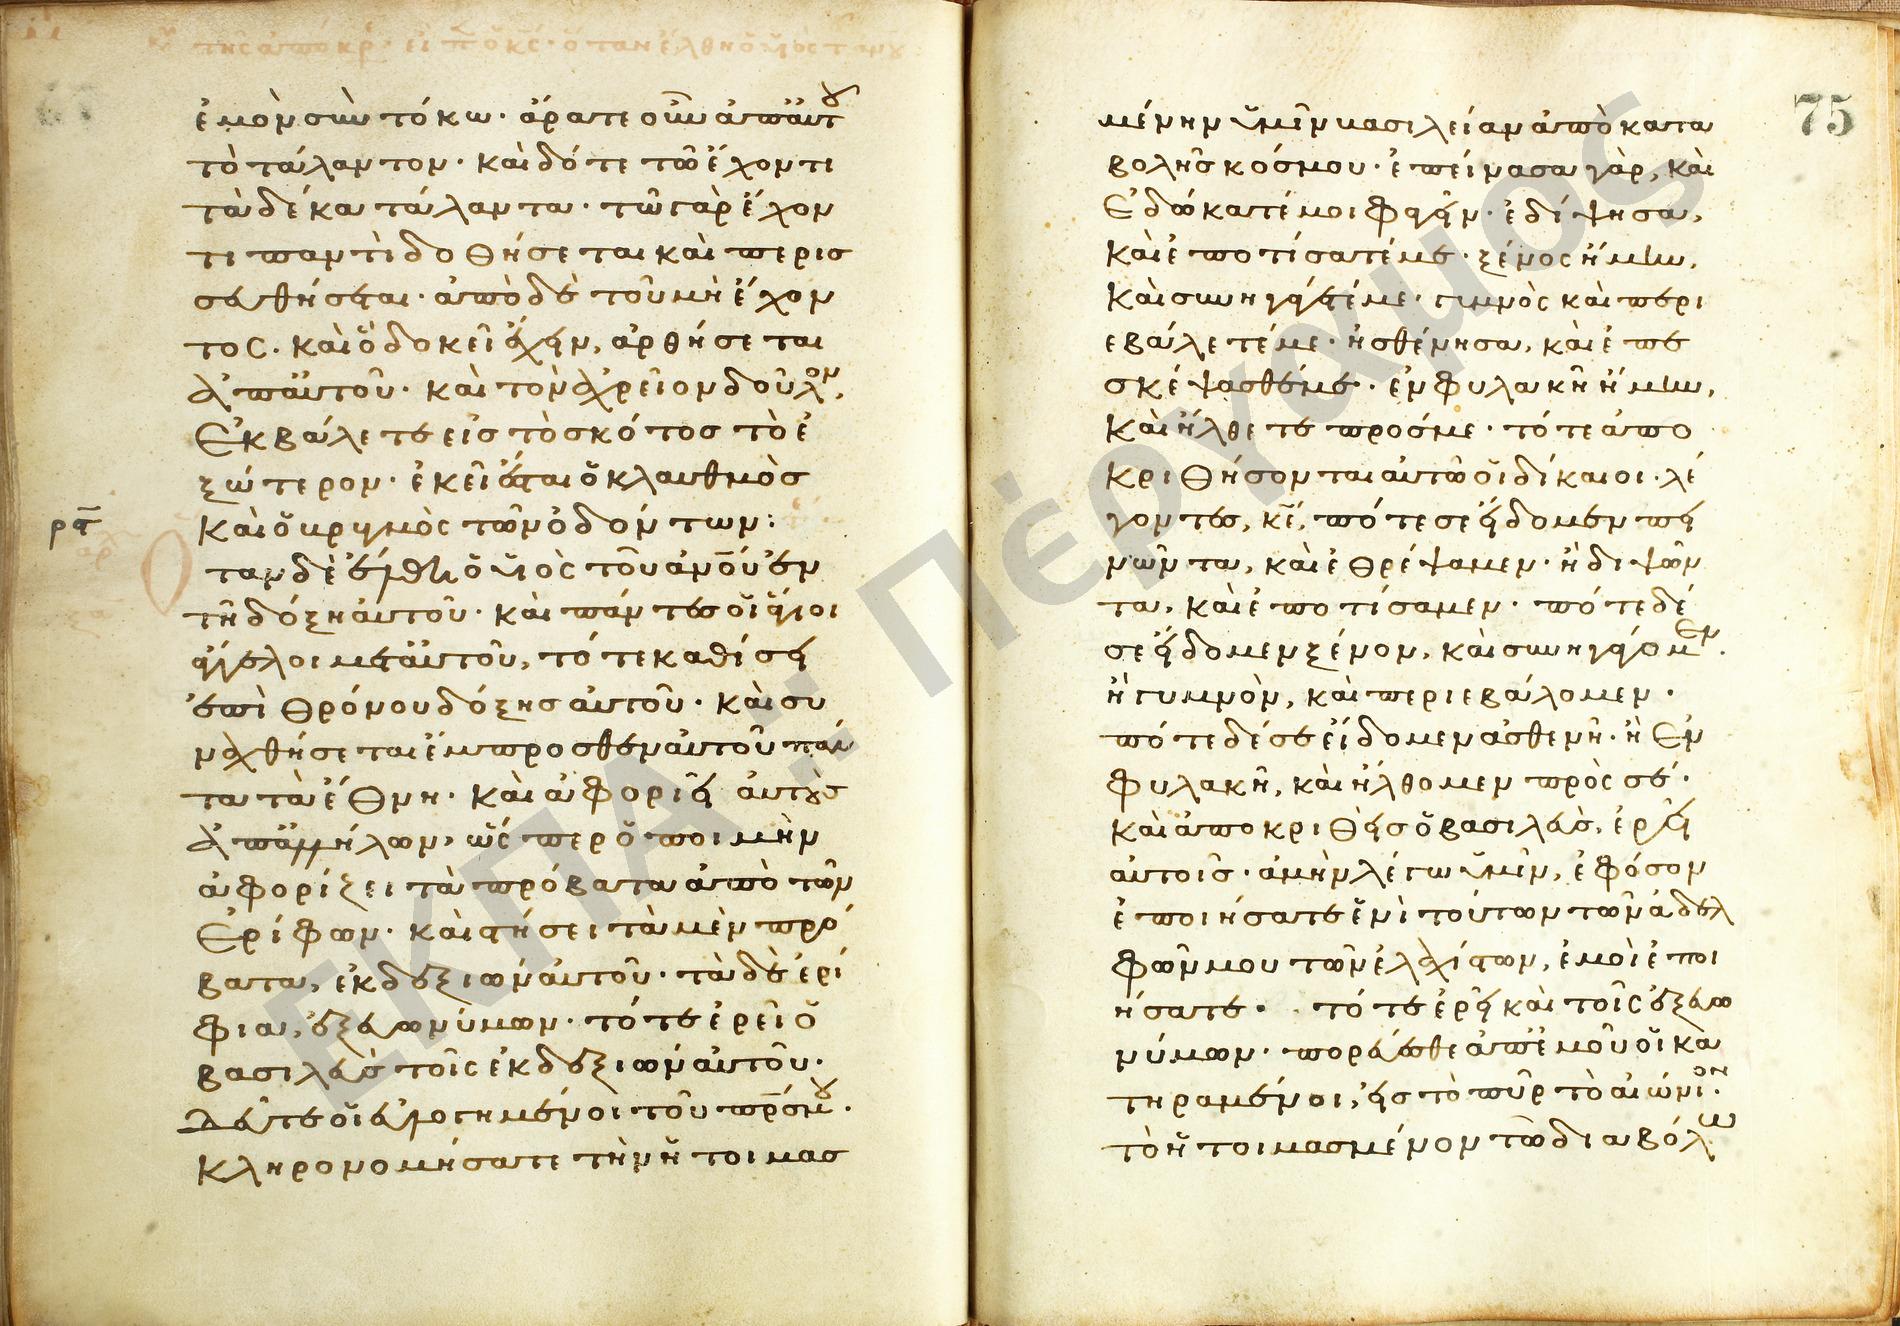 τῆς ἀπόκρ εἶπ ὁ κς ὅταν ἔλθη ὁ υἱὸς τ ἀνου
ἐμὸν σὺν τόκω· ἄρατε οὖν ἀπ ἀυτου
τὸ τάλαντον· καὶ δότε τῶ ἔχοντι
τὰ δέκα τάλαντα· τῶ γὰρ ἔχον
τι παντὶ δοθήσεται καὶ περισ
σευθήσεται· ἀπὸ δὲ τοῦ μὴ ἔχον
τος· καὶ ὃ δοκεῖ ἔχειν, ἀρθήσεται
ἀπ ἀυτοῦ· καὶ τὸν ἀχρεῖον δοῦλον,
ἐκβάλετε εἰς τὸ σκότος τὸ ἐ
ξώτερον· ἐκεῖ ἔσται ὁ κλαυθμὸς
καὶ ὁ βρυγμὸς τῶν ὀδόντων:
ρα
ταν δὲ ἔλθη ὁ υἱὸς τοῦ ἀνου ἐν
τῆ δόξη ἀυτοῦ· καὶ πάντες οἱ ἅγιοι
ἄγγελοι μετ ἀυτοῦ, τότε καθίσει
ἐπὶ θρόνου δόξης ἀυτοῦ· καὶ συ
ναχθήσεται ἔμπροσθεν ἀυτοῦ πάν
τα τὰ ἔθνη· καὶ ἀφοριεῖ ἀυτοὺς
ἀπ ἀλλήλων, ὥσπερ ὁ ποιμὴν
ἀφορίζει τὰ πρόβατα ἀπὸ τῶν
ἐρίφων· καὶ στήσει τὰ μὲν πρό
βατα, ἐκ δεξιῶν ἀυτοῦ· τὰ δὲ ἐρί
φια, ἐξ ἐυωνύμων· τότε ἐρεῖ ὁ
βασιλεὺς τοῖς ἐκ δεξιῶν ἀυτοῦ·
δεῦτε οἱ ἐυλογημένοι τοῦ πρς μου·
κληρονομήσατε τὴν ἡτοιμασ
75
μένην ὑμῖν βασιλείαν ἀπὸ κατα
βολῆς κόσμου· ἐπείνασα γὰρ, καὶ
ἐδώκατέ μοι φαγεῖν· ἐδίψησα,
καὶ ἐποτίσατέ με· ξένος ἤμην,
καὶ συνηγάγετέ με· γυμνὸς καὶ περι
εβάλετέ με· ἠσθένησα, καὶ ἐπε
σκέψασθέ με· ἐν φυλακῆ ἤμην,
καὶ ἤλθετε πρός με· τότε ἀπο
κριθήσονται ἀυτῶ οἱ δίκαιοι· λέ
γοντες, κε, πότε σε εἴδομεν πει
νῶντα, καὶ ἐθρέψαμεν· ἢ διψῶν
τα, καὶ ἐποτίσαμεν· πότε δέ
σε εἴδομεν ξένον, καὶ συνηγάγομεν.
ἢ γυμνὸν, καὶ περιεβάλομεν·
πότε δέ σε εἴδομεν ἀσθενῆ· ἢ ἐν
φυλακῆ, καὶ ἤλθομεν πρὸς σέ·
καὶ ἀποκριθεὶς ὁ βασιλεὺς, ἐρεῖ
ἀυτοῖς· ἀμὴν λέγω ὑμῖν, ἐφόσον
ἐποιήσατε ἑνὶ τούτων τῶν ἀδελ
φῶν μου τῶν ἐλαχίστων, ἐμοὶ ἐποι
ήσατε· τότε ἐρεῖ καὶ τοῖς ἐξ ἐυω
νύμων· πορεύεσθε ἀπ ἐμοῦ οἱ κα
τηραμένοι, εἰς τὸ πῦρ τὸ αἰώνιον·
τὸ ἡτοιμασμένον τῶ διαβόλω
ΕΚΠΑ :: Πέργαμος